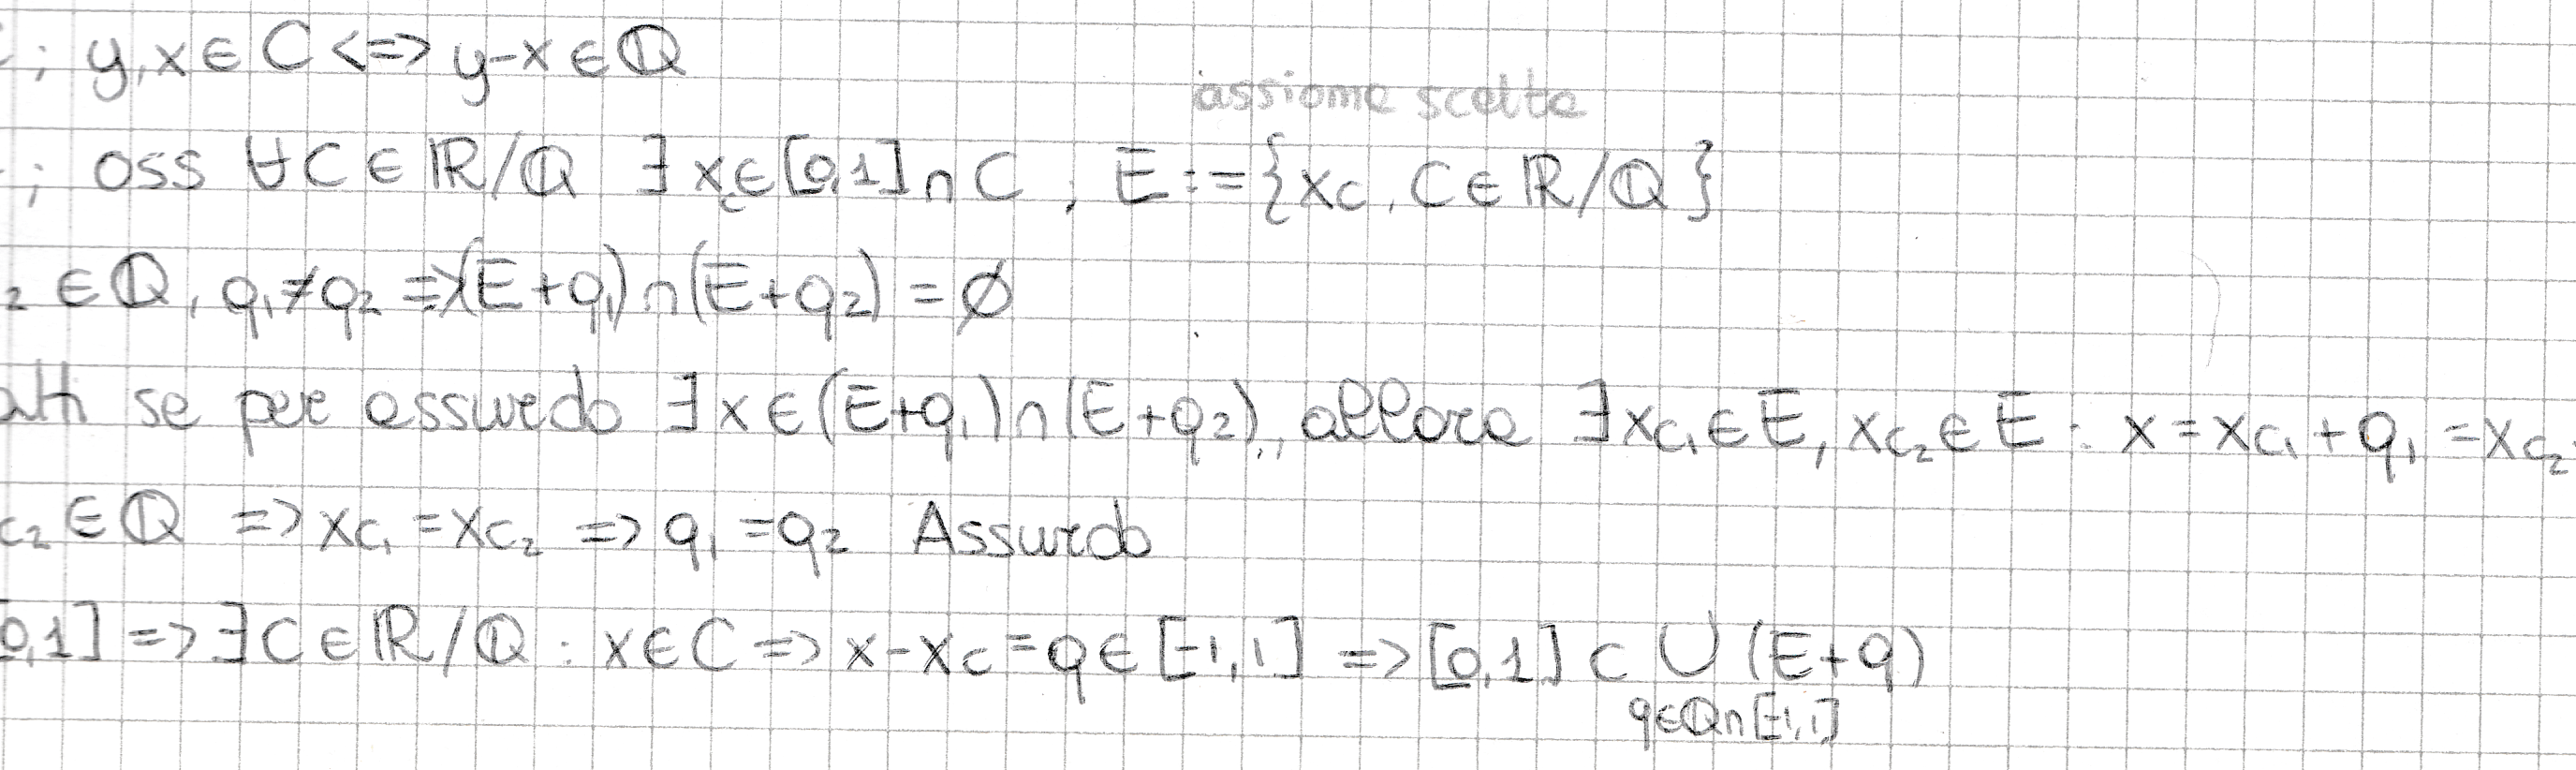 ; y, x ∈ C <=> y-x ∈ ℚ
assioma scelta
; oss ∀C ∈ ℝ/ℚ ∃ x_c ∈ [0,1] ∩ C , E := {x_C, C ∈ ℝ/ℚ}
₂ ∈ ℚ, q₁ ≠ q₂ => (E+q₁) ∩ (E+q₂) = ∅
atti se per assurdo ∃ x ∈ (E+q₁) ∩ (E+q₂), allora ∃ x_C₁ ∈ E, x_C₂ ∈ E : x = x_C₁ + q₁ = x_C₂
C₂ ∈ ℚ => x_C₁ = x_C₂ => q₁ = q₂ Assurdo
0,1] => ∃ C ∈ ℝ/ℚ : x ∈ C => x - x_C = q ∈ [-1,1] => [0,1] ⊂ ∪ (E+q)
q∈ℚ∩[-1,1]